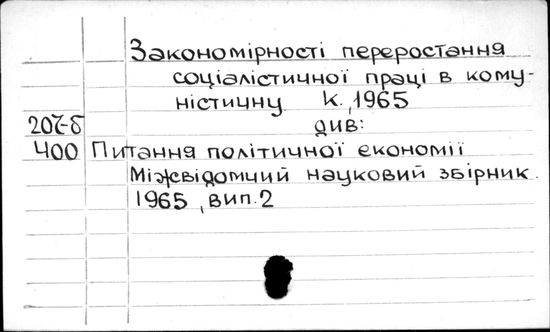 Закономірності переростання
соціалістичної праці в кому-
ністичну К., 1965
207-б
див:
400 Питання політичної економії
Міжвідомчий науковий збірник.
1965, вип. 2